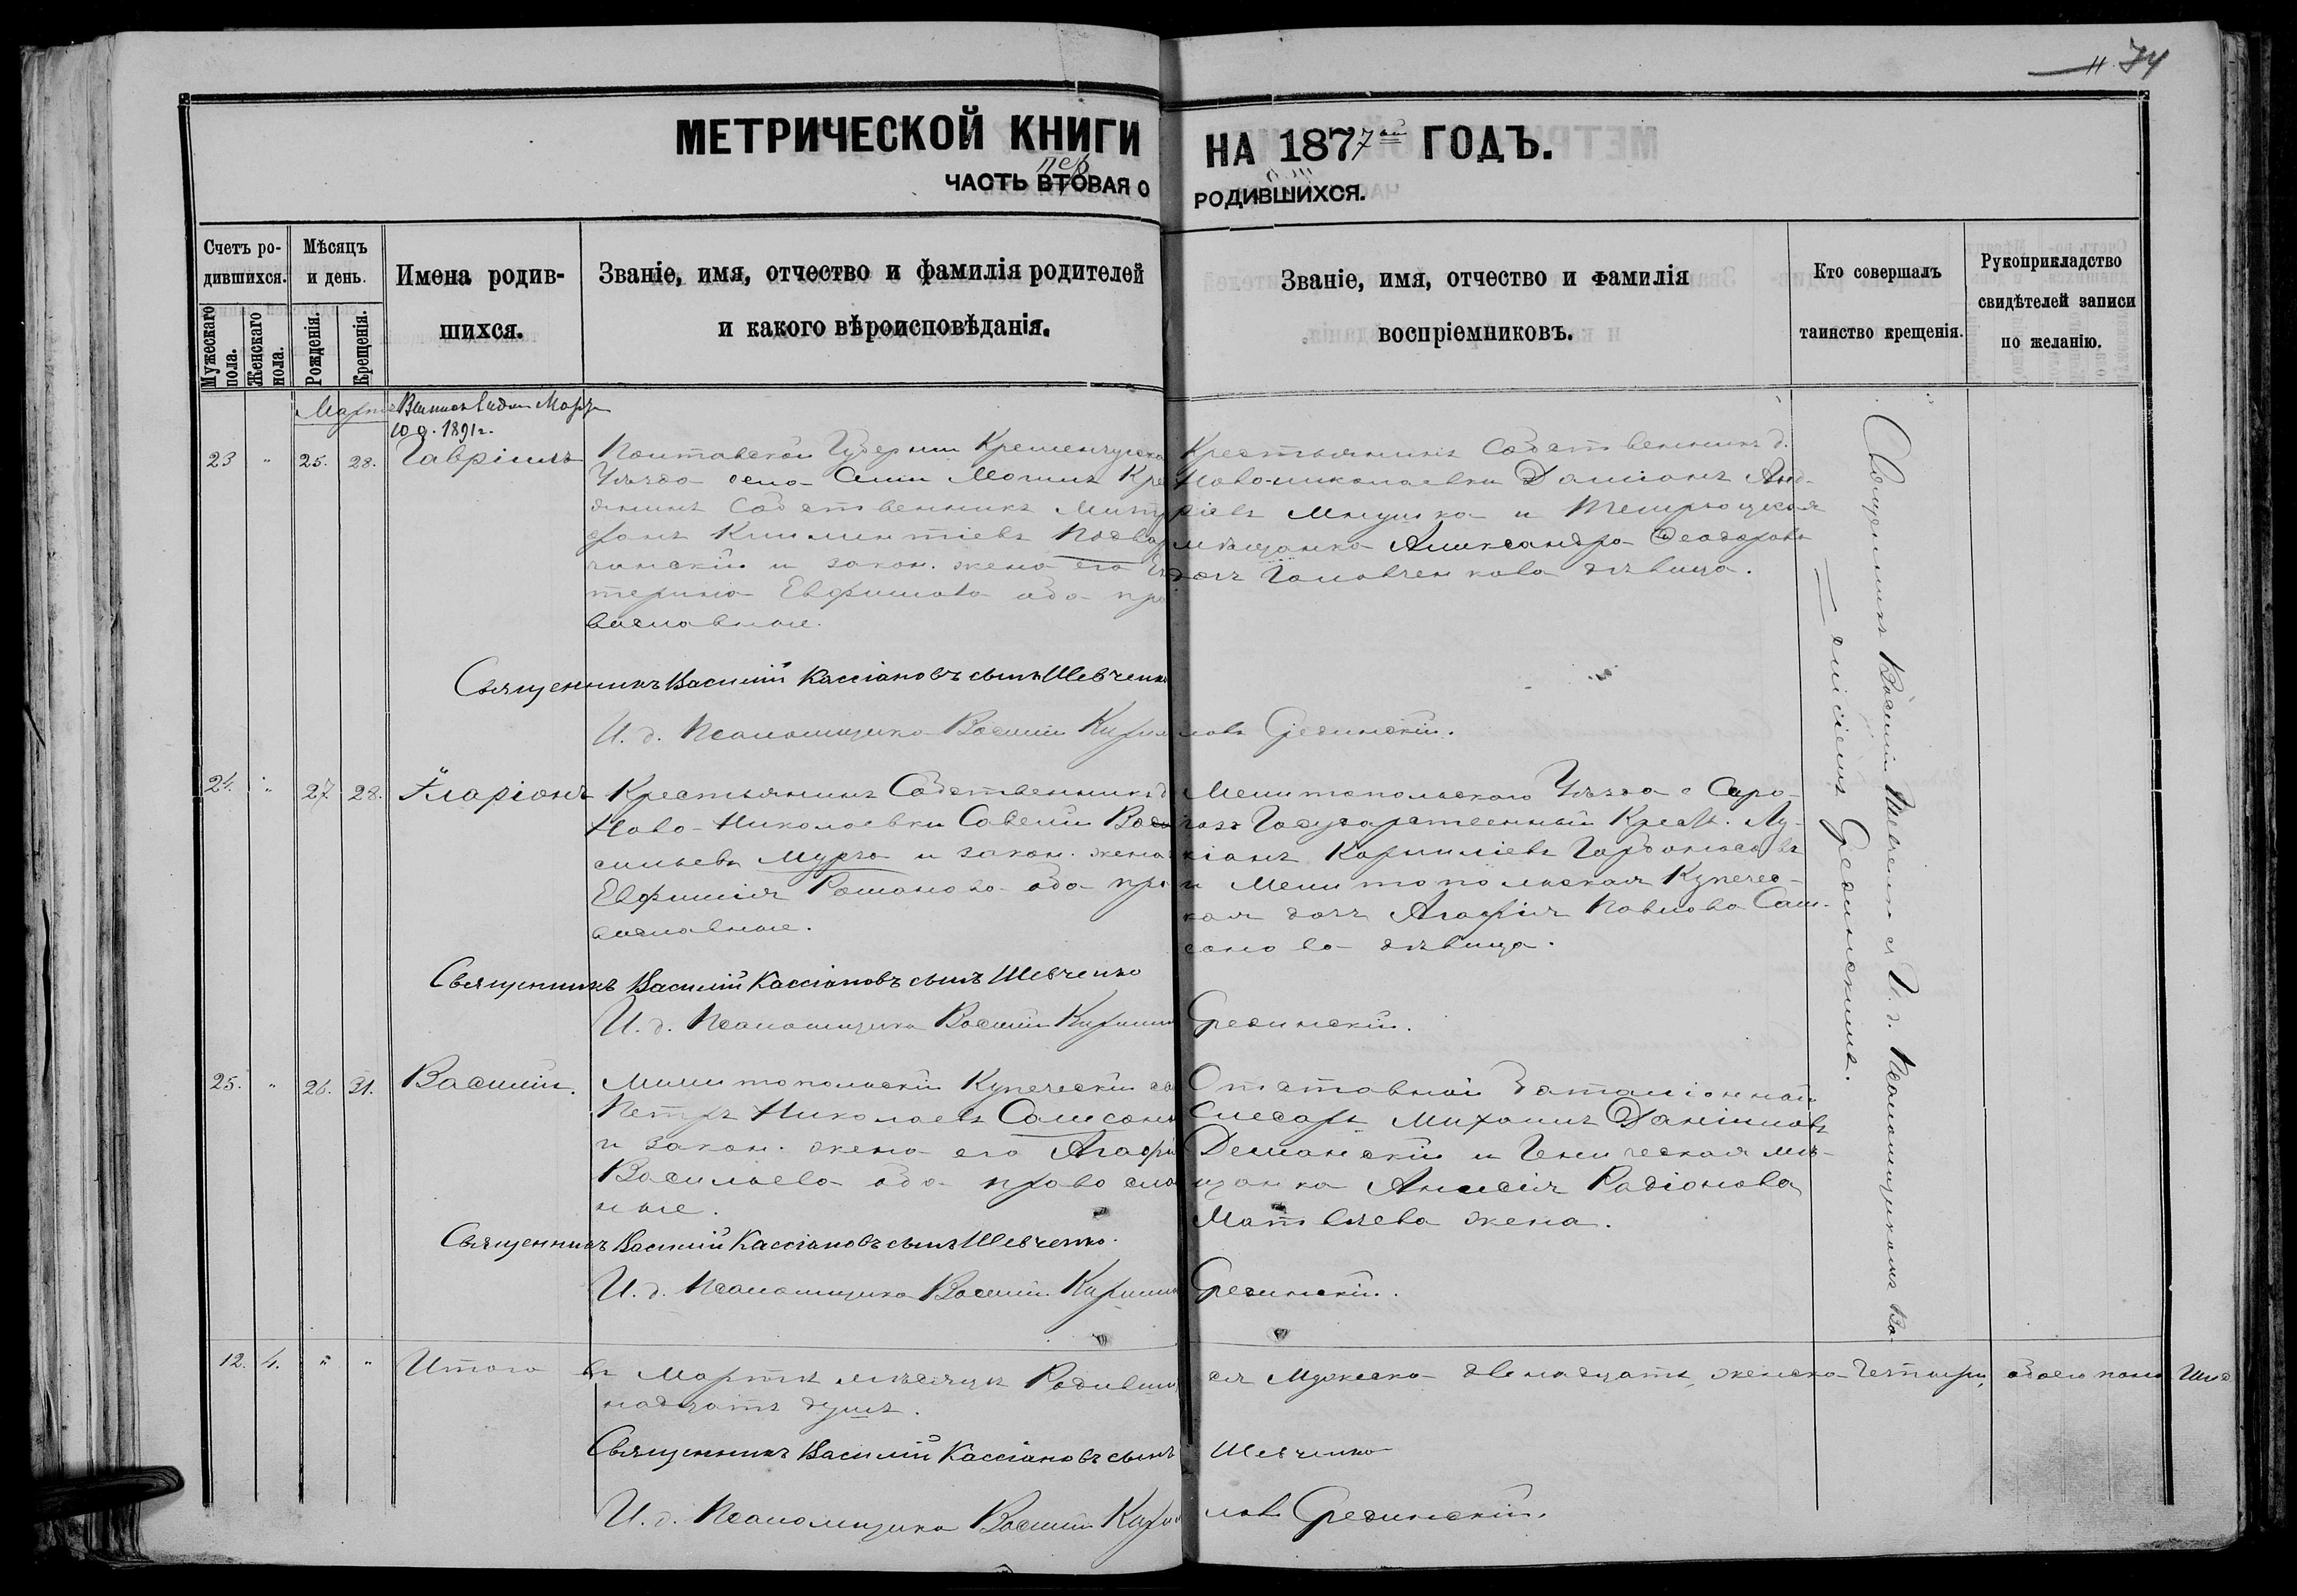 74
МЕТРИЧЕСКОЙ КНИГИ НА 1877ой ГОДЪ.
пер
ЧАСТЬ ВТОРАЯ О РОДИВШИХСЯ.
Счетъ родившихся.
Мужескаго пола.
Женскаго пола.
Мѣсяцъ и день.
Рожденія.
Крещенія.
Имена родившихся.
Званіе, имя, отчество и фамилія родителей
и какого вѣроисповѣданія.
Званіе, имя, отчество и фамилія
воспріемниковъ.
Кто совершалъ
таинство крещенія.
Рукоприкладство
свидѣтелей записи
по желанію.
Мартъ
10 д. 1891 г.
23 " 25. 28. Гавріилъ
Полтавской Губерніи Кременчугска
Уѣзда села Семи Могилъ Кре
янинъ Собственникъ Митр
фанъ Климентіевъ
и закон. жена его Ека
терина Евфимова оба пра
вославные.
Крестьянинъ Собственникъ д.
Ново-николаевки Даміанъ Анд-
ріевъ и
мѣщанка Александра Феодорова
дочь Головченкова дѣвица.
Священникъ Василій Кассіановъ сынъ Шевченко
И. д. Псаломщика Василій Кирилловъ Срединскій.
24. " 27 28. Иларіонъ
Крестьянинъ Собственникъ д
Ново-Николаевки Савелій Ва
сильевъ Мурза и закон. жена
Евфимія Романова оба пра
вославные.
Мелитопольскаго Уѣзда с Серо-
гозъ Государственный Крест. Лу-
кіанъ Корниліевъ
и Мелитопольская Купечес-
кая дочь Агафія Павлова Сам-
сонова дѣвица.
Священникъ Василій Кассіановъ сынъ Шевченко
И. д. Псаломщика Василій Кирилловъ Срединскій.
25. " 26. 31. Василій.
Мелитопольскій Купеческій сы
Петръ Николаевъ Самсоно
и закон. жена его Агафі
Васильева оба правосла
ные.
Отставной Баталіонный
Слесарь Михаилъ Даніиловъ
Деманскій и Геническая мѣ-
щанка Анисія Радіонова
Матвѣева жена.
Священникъ Василій Кассіановъ сынъ Шевченко.
И. д. Псаломщика Василій Кирилловъ Срединскій.
Священникъ Василій Шевченко съ И. д. Псаломщикомъ Ва-
силіемъ Срединскимъ.
12. 4. " " Итого въ Мартѣ мѣсяцѣ Родившихся Мужеска двенадцать, женска четыри, обоего пола Шес
надцать душъ.
Священникъ Василій Кассіановъ сынъ Шевченко
И. д. Псаломщика Василій Кирилловъ Срединскій.